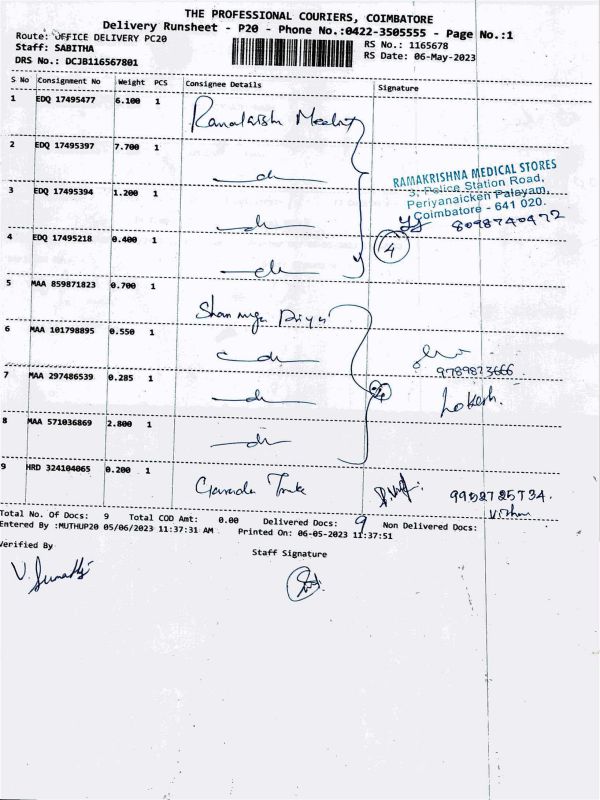 THE PROFESSIONAL COURIERS, COIMBATORE
Delivery Runsheet - P20 - Phone No.:0422-3505555 - Page No.:1
Route: OFFICE DELIVERY PC20
Staff: SABITHA
RS No.: 1165678
DRS No.: DCJB116567801
RS Date: 06-May-2023
S No Consignment No Weight PCS Consignee Details Signature
1 EDQ 17495477 6.100 1
2 EDQ 17495397 7.700 1
do
3 EDQ 17495394 1.200 1
do
4 EDQ 17495218 0.400 1
do
RAMAKRISHNA MEDICAL STORES
3, Police Station Road,
Periyanaicken Palayam,
Coimbatore - 641 020.
8098740472
4
5 MAA 859871823 0.700 1 Shanmuga Priya
6 MAA 101798895 0.550 1
do
9789873666
7 MAA 297486539 0.285 1
do
4
Lokesh.
8 MAA 571036869 2.800 1
do
9 HRD 324104065 0.200 1
9952725734.
Vishnu
Total No. Of Docs: 9 Total COD Amt: 0.00 Delivered Docs: 9 Non Delivered Docs:
Entered By :MUTHUP20 05/06/2023 11:37:31 AM Printed On: 06-05-2023 11:37:51
Verified By
Staff Signature